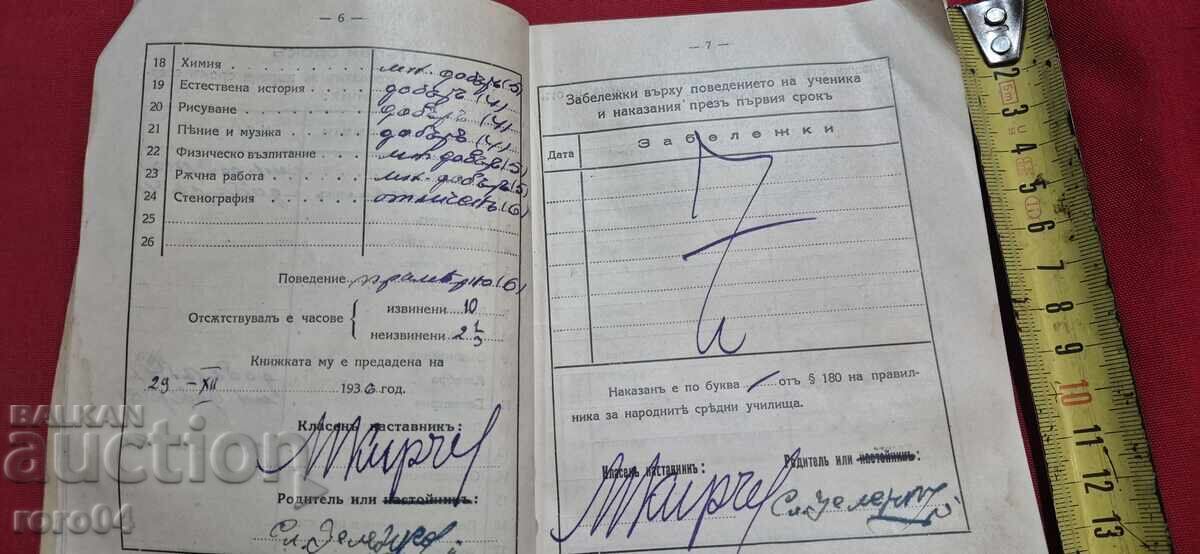 — 6 —
18 Химия мн. добъръ (5)
19 Естествена история добъръ (4)
20 Рисуване добъръ (4)
21 Пѣние и музика добъръ (4)
22 Физическо възпитание мн. добъръ (5)
23 Рѫчна работа мн. добъръ (5)
24 Стенография отличенъ (6)
25
26
Поведение (6)
Отсѫтствувалъ е часове
извинени 10
неизвинени 2 1/3
Книжката му е предадена на
29 — XII 1936 год.
Класенъ наставникъ:
Родитель или настойникъ:
— 7 —
Забележки върху поведението на ученика
и наказания презъ първия срокъ
Дата Забележки
Наказанъ е по буква — отъ § 180 на правил-
ника за народнитѣ срѣдни училища.
Класенъ наставникъ:
Родитель или настойникъ:
2
3
4
5
6
7
8
9
10
11
12
13
BALKAN
auction
roro04